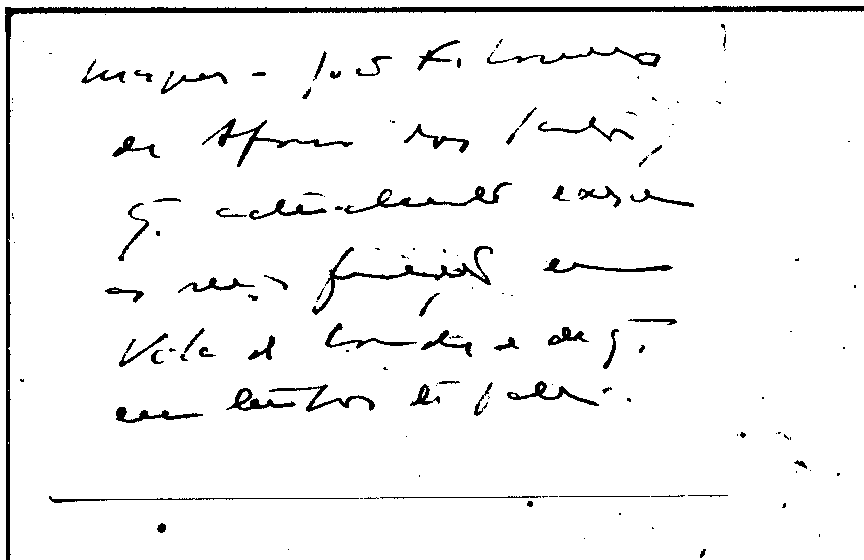 major - José F. Lourenço
de Afonso dos Santos,
q. actualmente exerce
as suas funções em
Vila do Conde e de q.
em tempos te falei.